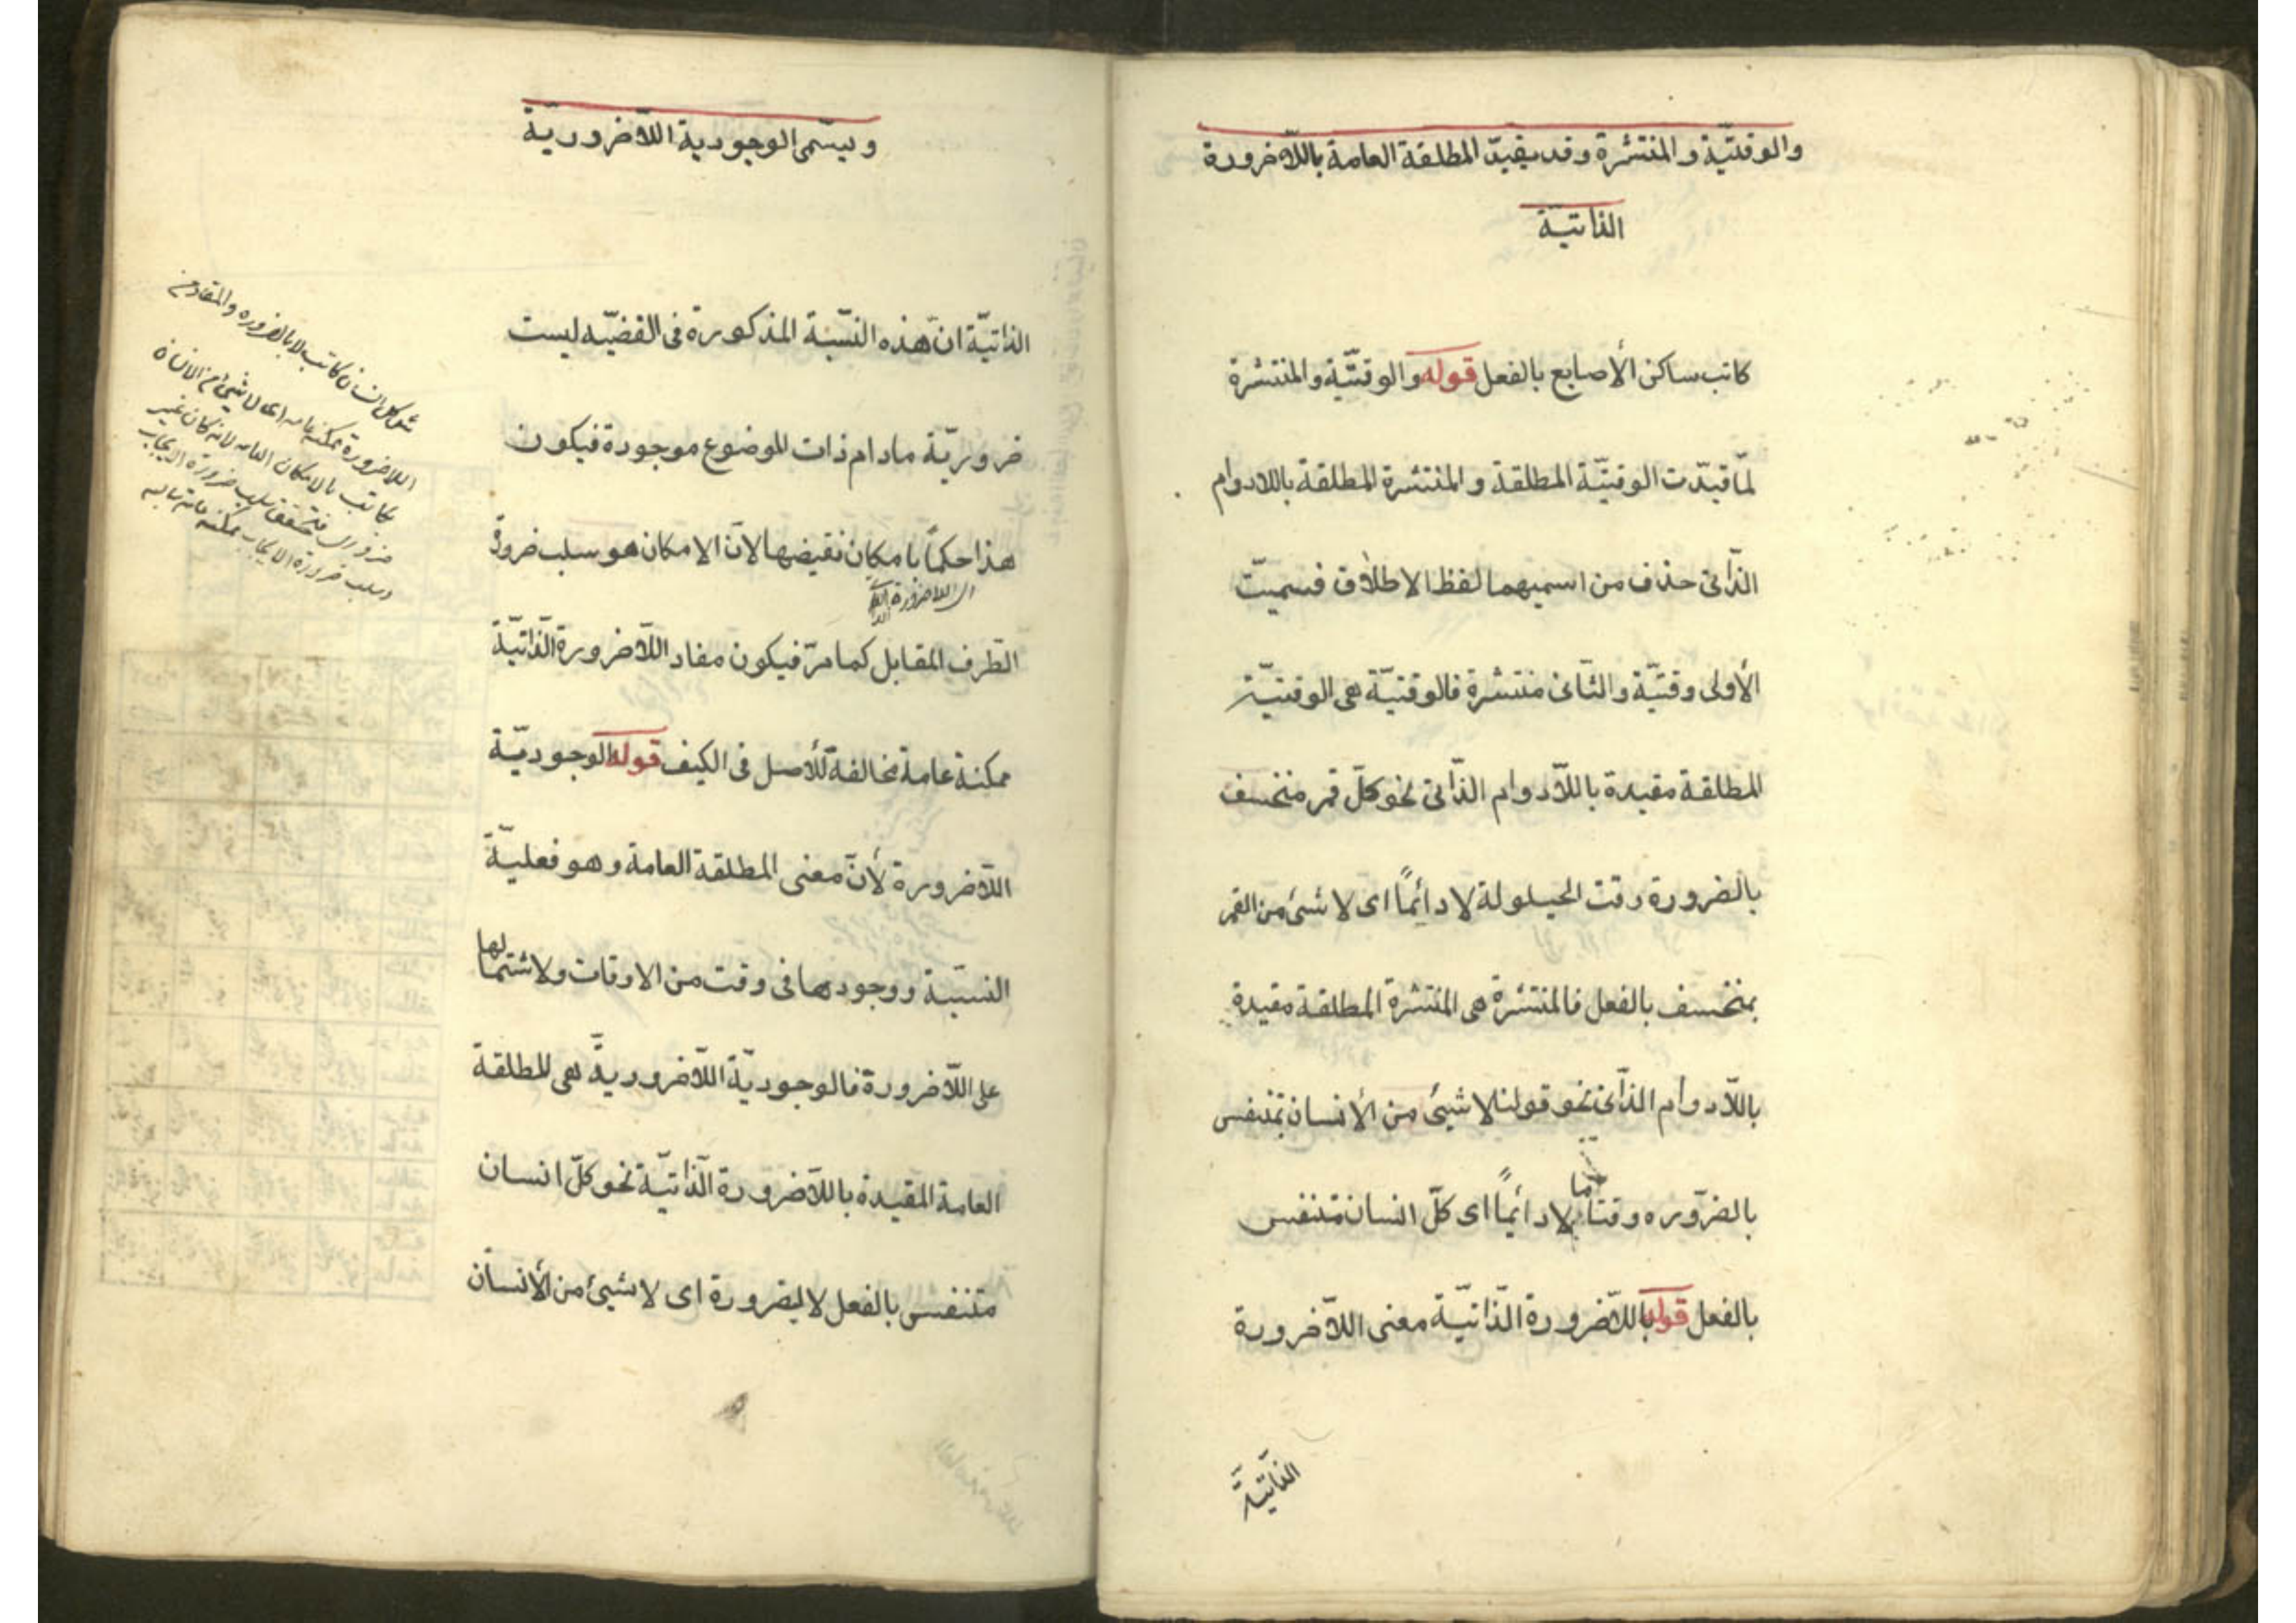 والوقتيّة والمنتشرة وقد يقيّد المطلقة العامة باللّاضرورة
الذاتيّة
كاتب ساكن الأصابع بالفعل قوله والوقتيّة والمنتشرة
لمّا قيّدت الوقتيّة المطلقة والمنتشرة المطلقة باللادوام
الذّاتى حذف من اسميهما لفظ الاطلاق فسميت
الأولى وقتيّة والثانى منتشرة فالوقتيّة هى الوقتيّة
المطلقة مقيدة باللّادوام الذّاتى نحو كلّ قمر منخسف
بالضرورة وقت الحيلولة لا دائمًا اى لا شئ من القمر
بمنخسف بالفعل فالمنتشرة هى المنتشرة المطلقة مقيدة
باللّادوام الذّاتى نحو قولنا لا شيئ من الأنسان بمتنفس
بالضّروره وقتا ما لا دائمًا اى كلّ انسان متنفس
بالفعل قوله باللّاضرورة الذّاتيّة معنى اللّاضرورة
الذّاتيّة
ويسمّى الوجودية اللّاضروريّة
الذاتيّة انّ هذه النسّبة المذكورة فى القضيّه ليست
ضروريّة مادام ذات الموضوع موجودة فيكون
هذا حكمًا بامكان نقيضها لانّ الامكان هو سلب ضرورة
اى اللاضرورة
الطّرف المقابل كما مرّ فيكون مفاد اللّاضرورة الذّاتيّة
ممكنة عامة مخالفة للأصل فى الكيف قوله الوجوديّة
اللّاضرورة لأنّ معنى المطلقة العامة وهو فعليّة
النسبّة ووجودها فى وقت من الاوقات ولاشتمالها
على اللّاضرورة فالوجوديّة اللّاضروريّة هى المطلقة
العامة المقيدة باللّاضرورة الذّاتيّة نحو كلّ انسان
متنفس بالفعل لا بالضرورة اى لا شيئ من الأنسان
كل انسان كاتب لا بالضروره
اللاضرورة ممكنه عامه اى لا شيئ من الانسان
بكاتب بالامكان العام لانه كان غير
ضرورى فتحقق سلب ضرورة الايجاب
وسلب ضرورة الايجاب ممكنه عامه سالبه